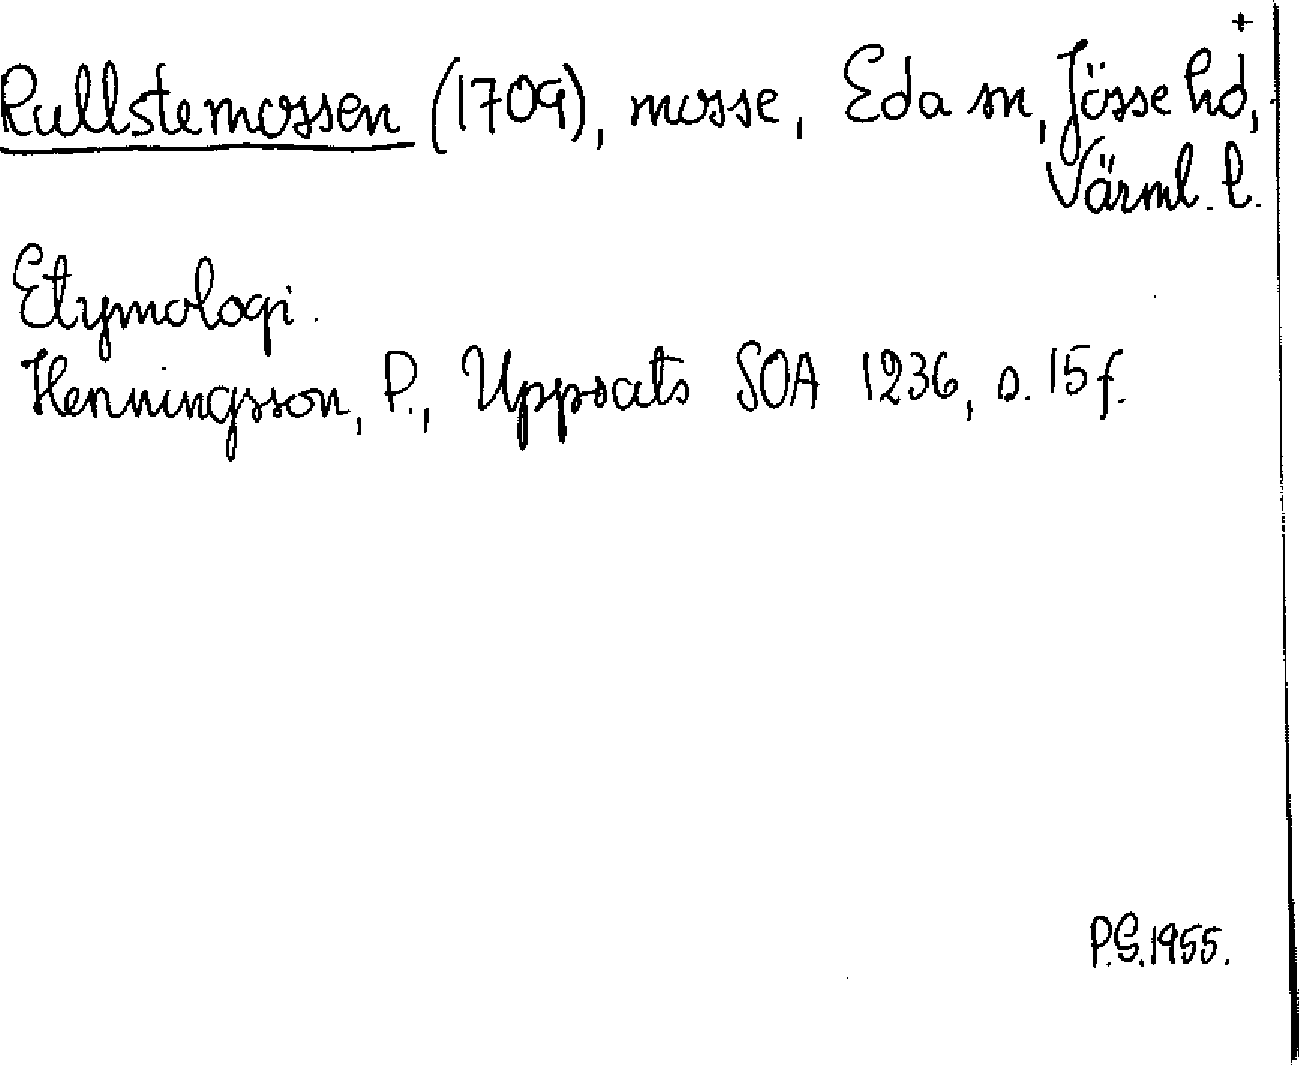 +
Rullstemossen (1709), mosse, Eda sn, Jösse hd,
Värml. l.
Etymologi.
Henningsson, P., Uppsats SOA 1236, s. 15 f.
P.S. 1955.